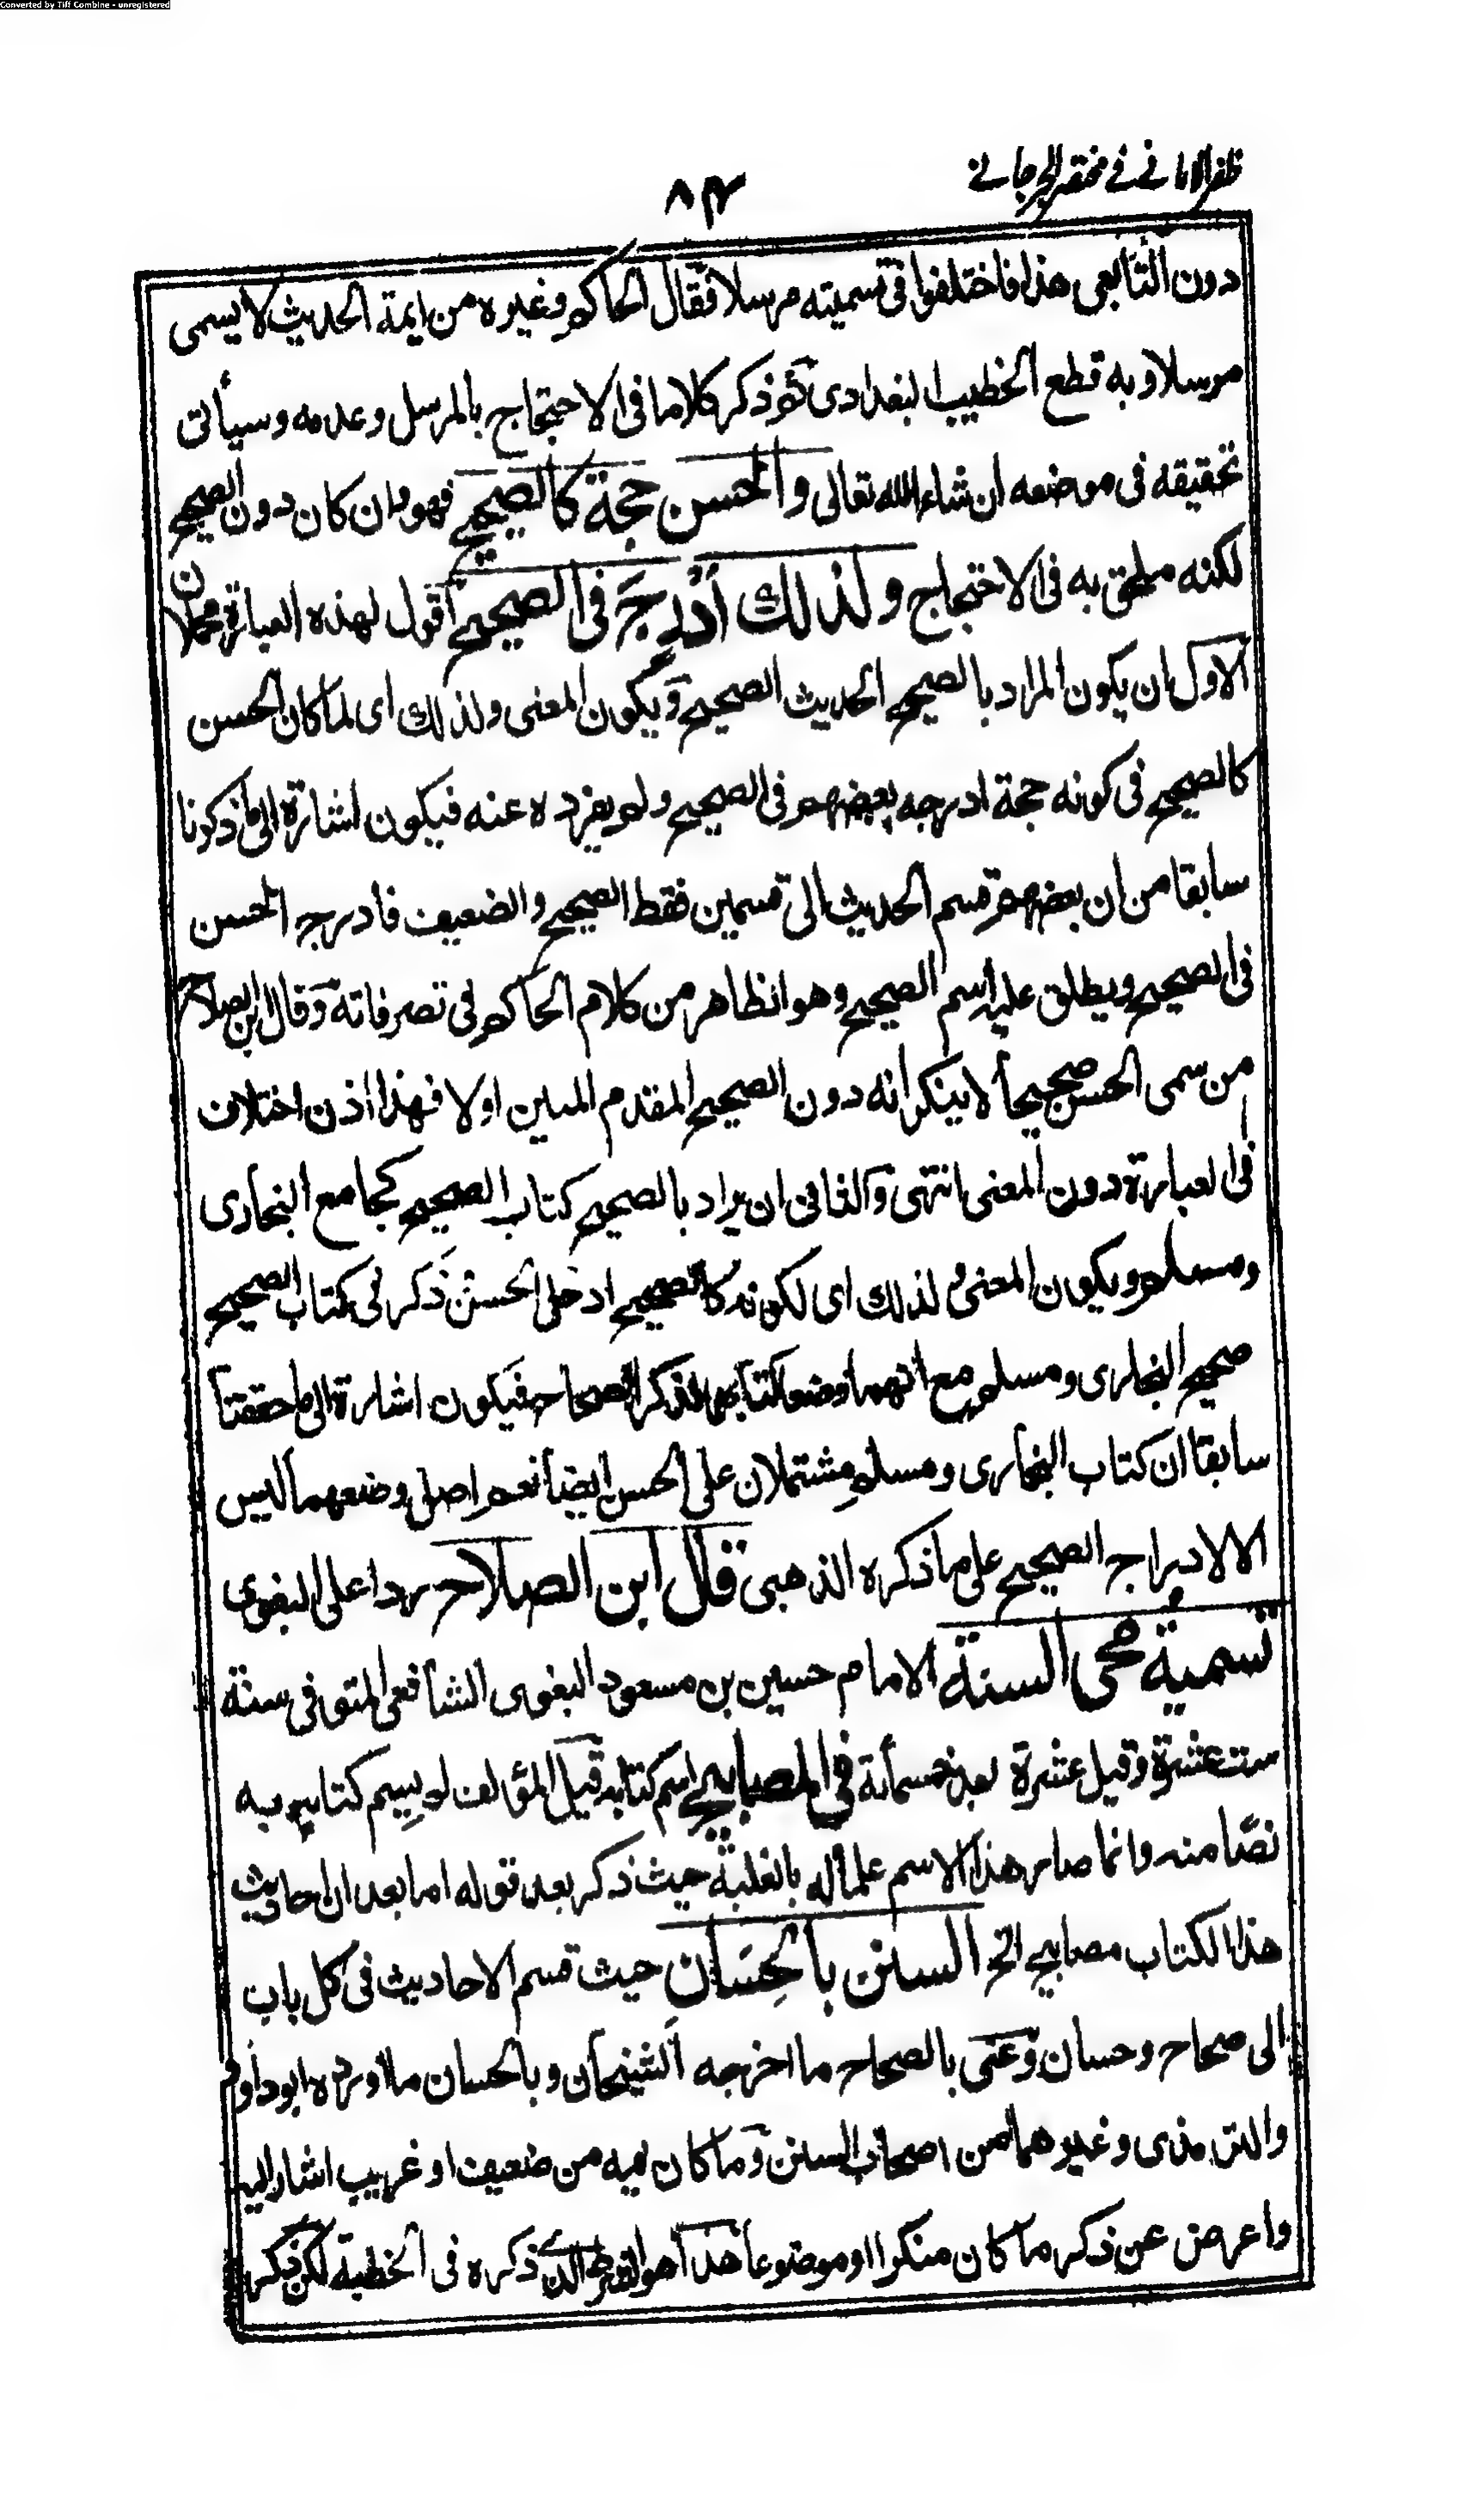 Converted by Tiff Combine - unregistered
ظفر الامانى فى مختصر الجرجانى
٨٣
دون التابعى هذا فاختلفوا فى تسميته مرسلا فقال الحاكم وغيره من ايمة الحديث لا يسمى
مرسلا وبه قطع الخطيب البغدادى ثم ذكر كلاما فى الاحتجاج بالمرسل وعدمه وسيأتى
تحقيقه فى موضعه ان شاء الله تعالى والحسن حجة كالصحيح فهو وان كان دون الصحيح
لكنه ملحق به فى الاحتجاج ولذلك أُدرِجَ فى الصحيح اقول لهذه العبارة محملان
الاول ان يكون المراد بالصحيح الحديث الصحيح ويكون المعنى ولذلك اى لما كان الحسن
كالصحيح فى كونه حجة ادرجه بعضهم فى الصحيح ولم يفرده عنه فيكون اشارة الى ما ذكرنا
سابقا من ان بعضهم قسم الحديث الى قسمين فقط الصحيح والضعيف فادرج الحسن
فى الصحيح ويطلق عليه اسم الصحيح وهو الظاهر من كلام الحاكم فى تصرفاته وقال ابن الصلاح
من سمى الحسن صحيحا لا ينكر انه دون الصحيح المقدم المبين اولا فهذا اذن اختلاف
فى العبارة دون المعنى انتهى والثانى ان يراد بالصحيح كتاب الصحيح كجامع البخارى
ومسلم ويكون المعنى ولذلك اى لكونه كالصحيح ادخل الحسن وذكر فى كتاب الصحيح
صحيح البخارى ومسلم مع انهما وضعا كتابهما لذكر الصحاح فيكون اشارة الى ما حققنا
سابقا ان كتاب البخارى ومسلم مشتملان على الحسن ايضا نعم اصل وضعهما ليس
الا لادراج الصحيح على ما ذكره الذهبى قال ابن الصلاح ردا على البغوى
تسمية محى السنة الامام حسين بن مسعود البغوى الشافعى المتوفى سنة
ست عشرة وقيل عشرة بعد خمسمأئة فى المصابيح اسم كتابه قيل المؤلف لم يسم كتابه به
نصّا منه وانما صار هذا الاسم علما له بالغلبة حيث ذكر بعد قوله اما بعد ان احاديث
هذا الكتاب مصابيح الخ السنن بالحِسَانِ حيث قسم الاحاديث فى كل باب
الى صحاح وحسان وعنى بالصحاح ما اخرجه الشيخان وبالحسان ما اورده ابوداود
والترمذى وغيرهما من اصحاب السنن وما كان فيه من ضعيف او غريب اشار اليه
واعرض عن ذكر ما كان منكرا او موضوعا هذا هو الذى ذكره فى الخطبة لكن ذكر